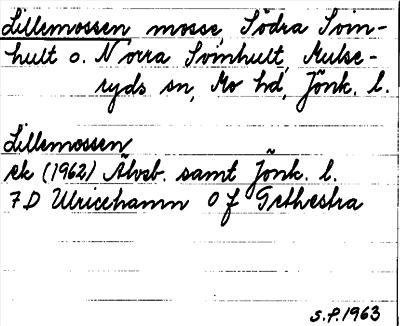 Lillemossen mosse, Södra Svin-
hult o. Norra Svinhult, Mulse-
ryds sn, Mo hd, Jönk. l.
Lillemossen
ek (1962) Älvsb. samt Jönk. l.
7 D Ulricehamn 0 f Grthestra
S.P. 1963